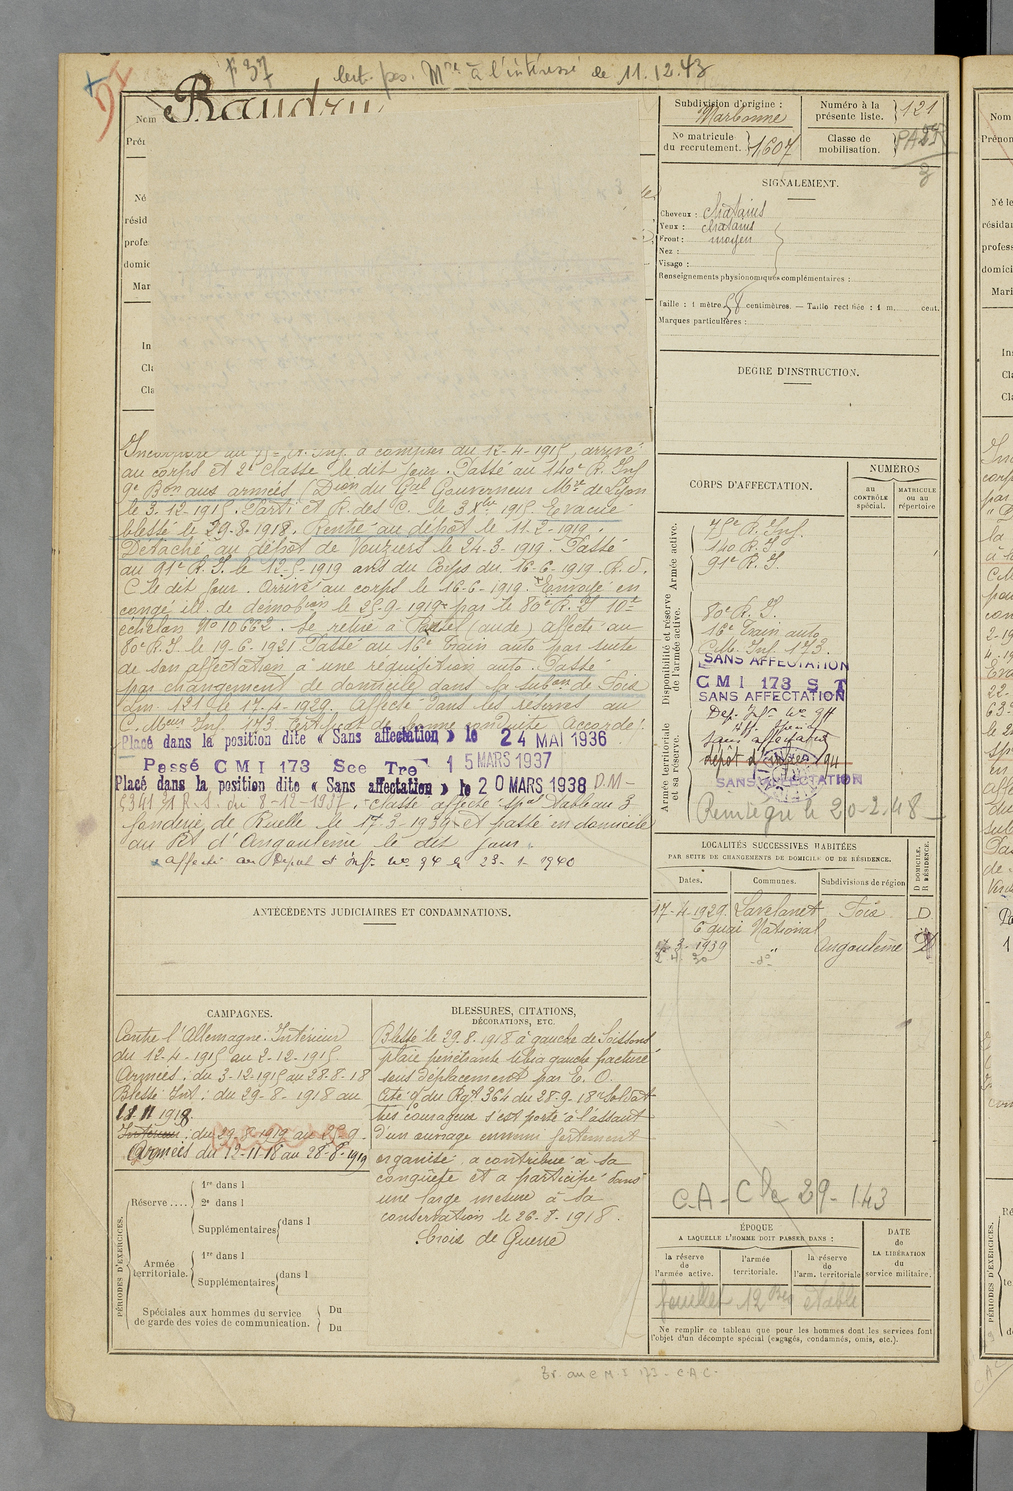 F 37
Cert. pos. Mre à l'intéressé le 11.12.43
Baudru
Nom
Né
résid
profe
domic
Mar
In
Cla
Cla
Incorporé au R. Inf. à compter du 12-4-1915, arrivé
au corps et 2e classe le dit jour. Passé au 140e R. Inf
9e Bon aux armées (Dion du Gal Gouverneur Mre de Lyon
le 3-12-1915. Parti et R. des C. le 3 Xbre 1915. Evacué
blessé le 29-8-1918. Rentré au dépôt le 11-2-1919.
Détaché au dépôt de Vouziers le 24-3-1919. Passé
au 91e R.I. le 12-5-1919 ans du Corps du 16-6-1919 R.d.
C. le dit jour. Arrivé au corps le 16-6-1919. Envoyé en
congé ill. de démobion le 25-9-1919 par le 80e R.I 10e
échelon No 10662. Se retire à (aude) Affecté au
80e R.I. le 19-6-1921 Passé au 16e Train auto par suite
de son affectation à une réquisition auto. Passé
par changement de domicile dans la subon de Foix
Lm 121 le 17-4-1929. Affecté dans les réserves au
C. Meur Inf. 173 Certificat de bonne conduite Accordé.
Placé dans la position dite « Sans affectation » le 24 MAI 1936
Passé CMI 173 Sce Tre 15 MARS 1937
Placé dans la position dite « Sans affectation » le 20 MARS 1938 D.M-
du 8-12-1937. - Classé affecté spal Tableau 3
fonderie de Ruelle le 17-3-1939 et passé en domicile
au Rt d'Angoulême le dit jour.
affecté au Dépôt d'Inf. No 94 le 23-1-1940
ANTÉCÉDENTS JUDICIAIRES ET CONDAMNATIONS.
CAMPAGNES.
Contre l'Allemagne. Intérieur
du 12-4-1915 au 2-12-1915
Armées: du 3-12-1915 au 28-8-18
Blessé Int: du 29-8-1918 au
11 11 1918.
Intérieur: du 29-8-1919 au 25-9-
Armées du 12-11-18 au 28-8-1919
PÉRIODES D'EXERCICES.
Réserve....
1re dans l
2e dans l
Supplémentaires dans l
Armée territoriale.
1re dans l
Supplémentaires dans l
Spéciales aux hommes du service
de garde des voies de communication.
Du
Du
BLESSURES, CITATIONS,
DÉCORATIONS, ETC.
Blessé le 29-8-1918 à gauche de Soissons
plaie pénétrante tibia gauche fracturé
sans déplacement par E.O.
Cité O du Rgt 364 du 28-9-18 "Soldat
très courageux s'est porté à l'assaut
d'un ouvrage ennemi fortement
organisé, a contribué à sa
conquête et a participé dans
une large mesure à sa
conservation le 26-8-1918.
Croix de Guerre
Subdivision d'origine :
Narbonne
Numéro à la
présente liste.
121
No matricule
du recrutement.
1607
Classe de
mobilisation.
SIGNALEMENT.
Cheveux : châtains
Yeux : châtains
Front : moyen
Nez :
Visage :
Renseignements physionomiques complémentaires :
Taille : 1 mètre 58 centimètres. — Taille rectifiée : 1 m. cent.
Marques particulières :
DEGRÉ D'INSTRUCTION.
CORPS D'AFFECTATION.
NUMÉROS
au
CONTRÔLE
spécial.
MATRICULE
ou au
répertoire
Armée active.
140 R.I.
91e R.I.
Disponibilité et réserve
de l'armée active.
80e R.I.
16e Train auto
C.M. Inf. 173.
SANS AFFECTATION
CMI 173 S T
SANS AFFECTATION
Armée territoriale
et sa réserve.
Dep. Infie No 94
sans affectation
SANS AFFECTATION
Réintégré le 20-2-48
LOCALITÉS SUCCESSIVES HABITÉES
PAR SUITE DE CHANGEMENTS DE DOMICILE OU DE RÉSIDENCE.
Dates.
Communes.
Subdivisions de région
D DOMICILE.
R RÉSIDENCE.
17-4-1929 Lavelanet Foix D
6 quai National
17-3-1939 " Angoulême D
-do-
C.A - Cle 29-143
ÉPOQUE
A LAQUELLE L'HOMME DOIT PASSER DANS :
la réserve
de
l'armée active.
l'armée
territoriale.
la réserve
de
l'arm. territoriale
DATE
de
LA LIBÉRATION
du
service militaire.
feuillet 12 Bis établi
Ne remplir ce tableau que pour les hommes dont les services font
l'objet d'un décompte spécial (engagés, condamnés, omis, etc.).
Tr. au C M I 173 - C.A.C-